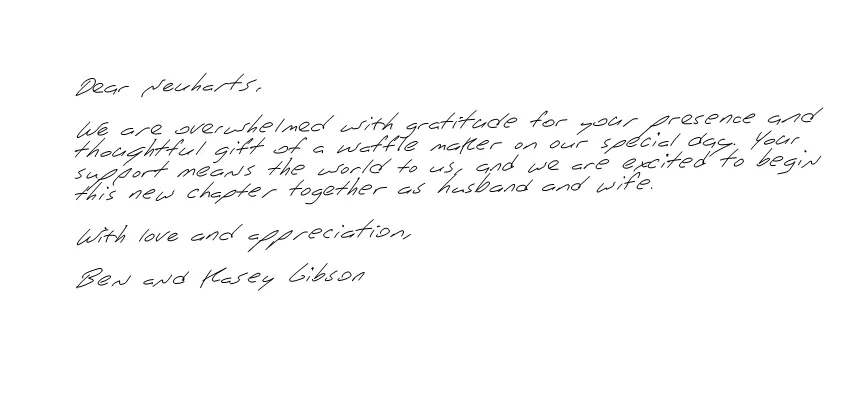 Dear Neuharts,
We are overwhelmed with gratitude for your presence and
thoughtful gift of a waffle maker on our special day. Your
support means the world to us, and we are excited to begin
this new chapter together as husband and wife.
With love and appreciation,
Ben and Kasey Gibson